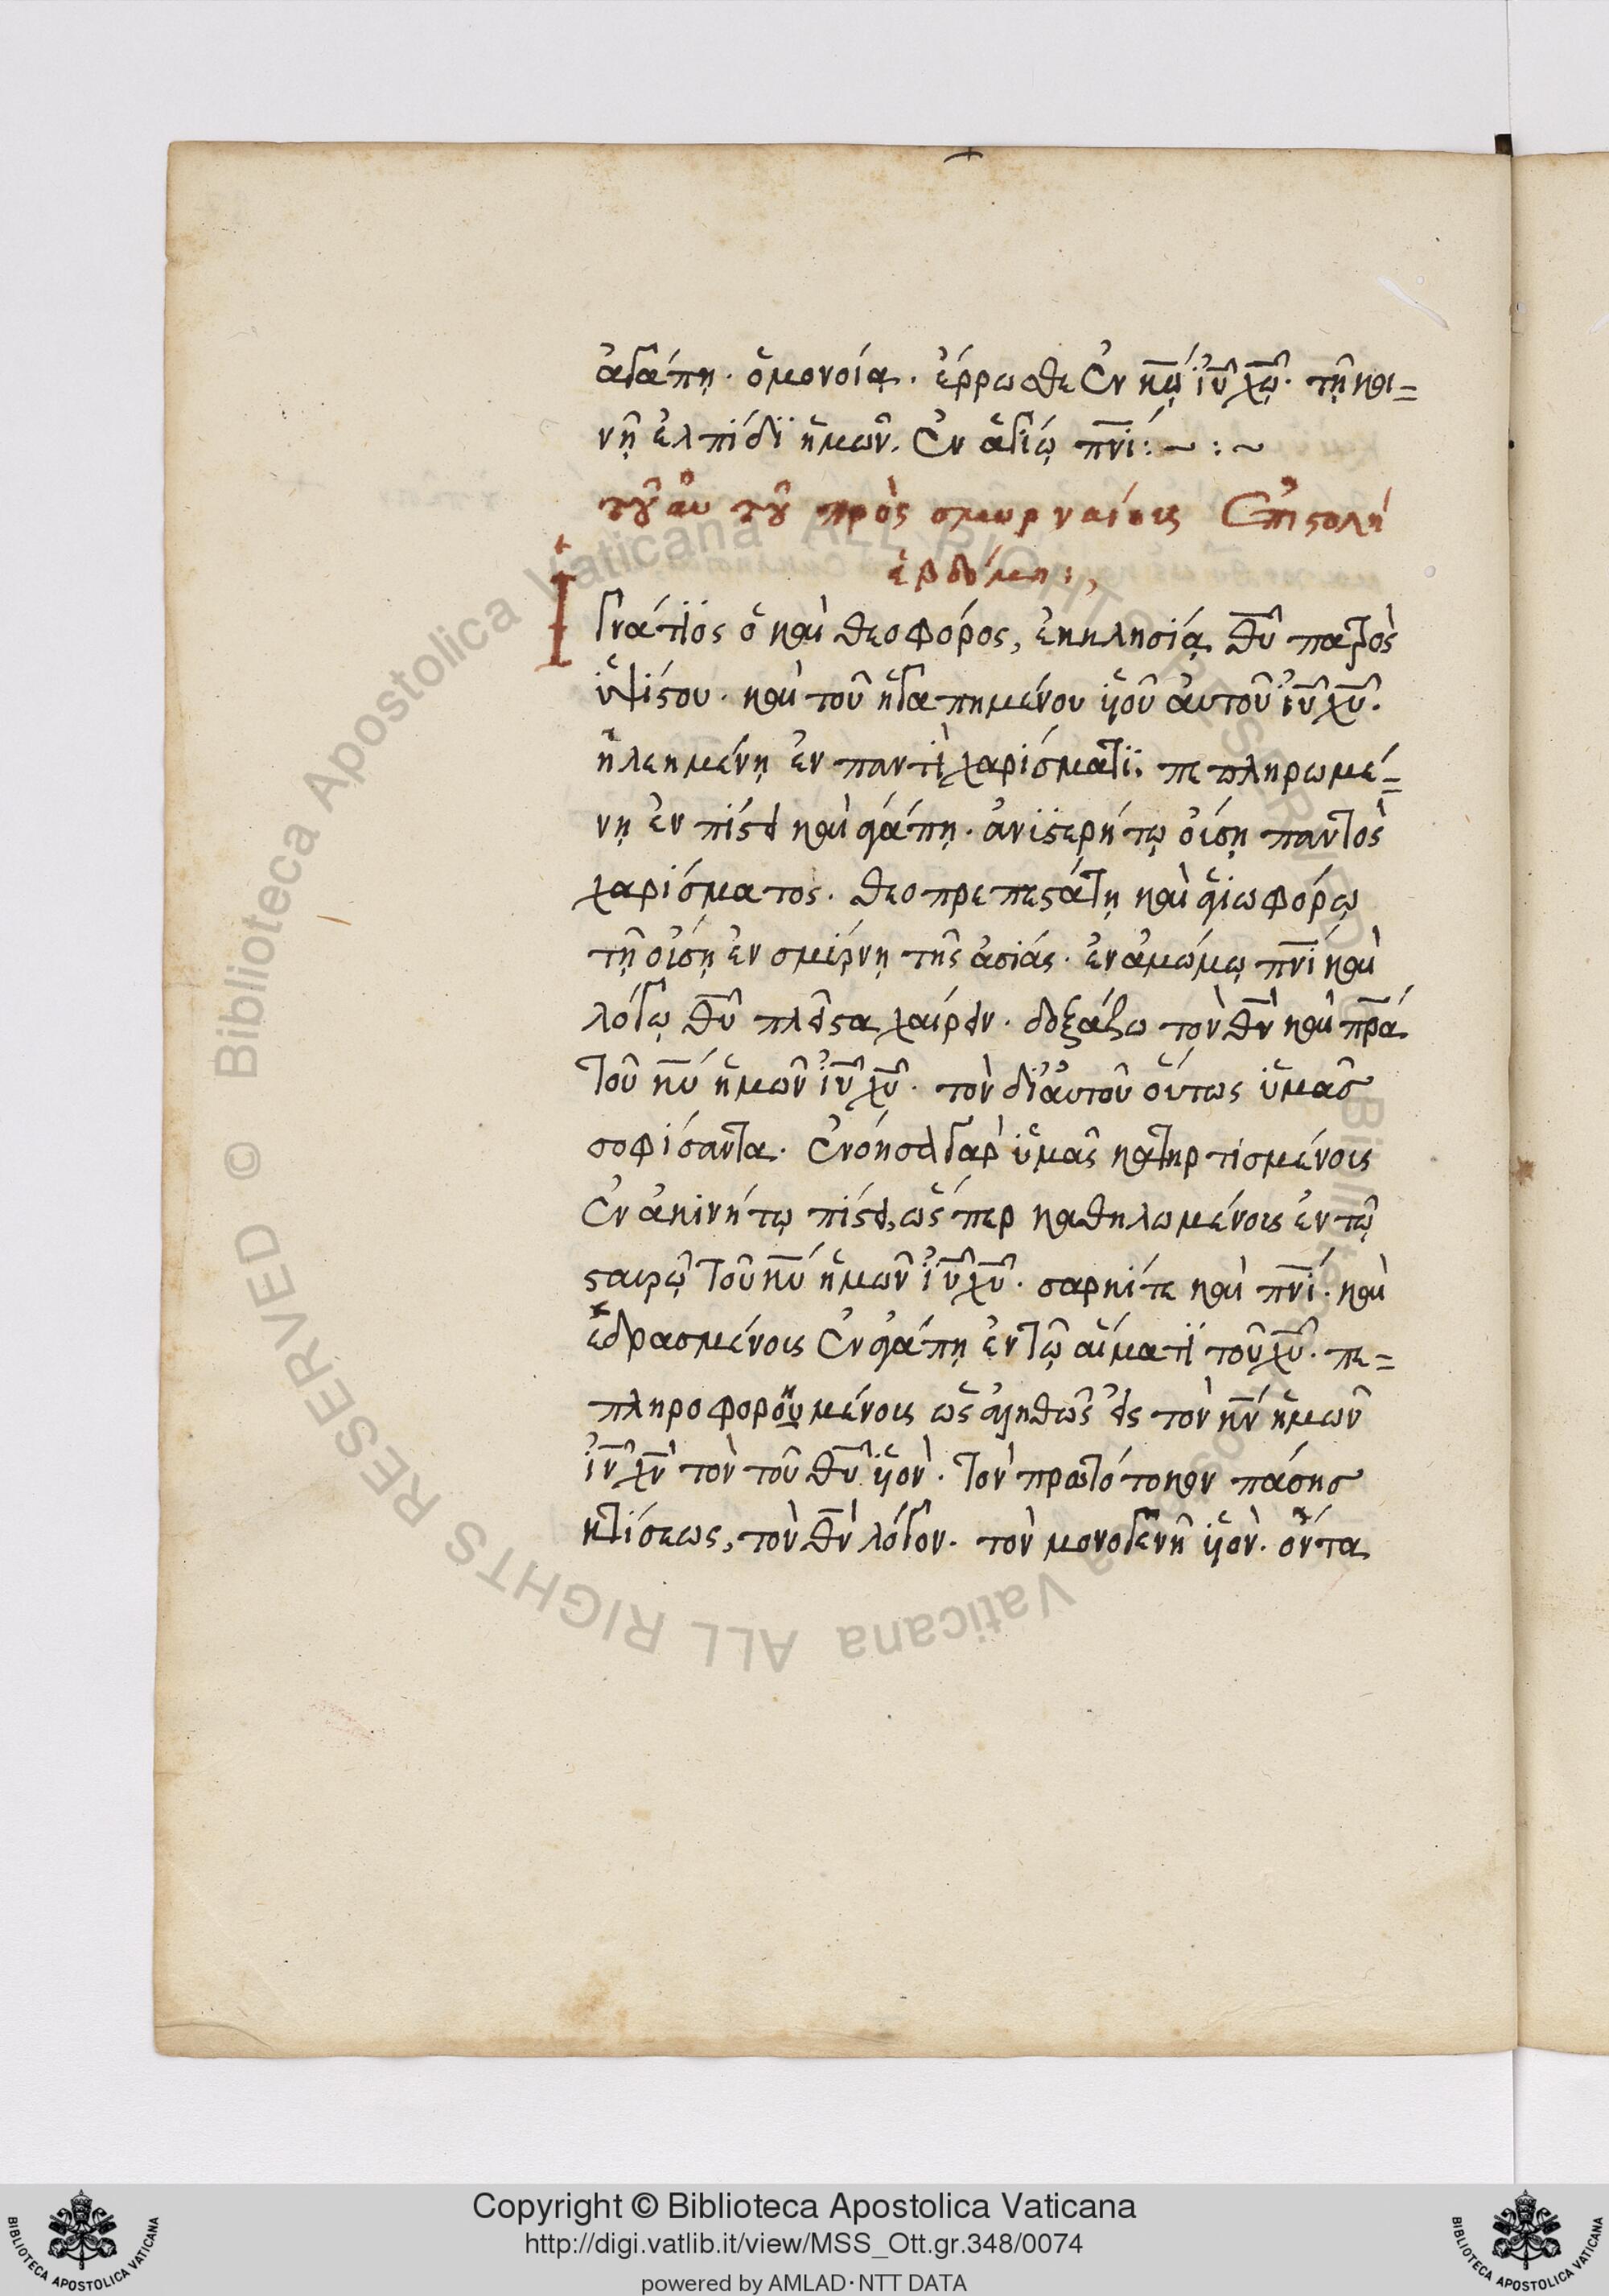 ἀγάπῃ· ὁμονοίᾳ. ἔρρωσθε ἐν κ̅ω̅ ἰ̅υ̅ χ̅ω̅· τῇ κοι=
νῇ ἐλπίδϊ ἡμῶν. ἐν ἁγίῳ π̅ν̅ι̅:~:~
τοῦ αὐτοῦ πρὸς σμυρναίοις ἐπιστολὴ
ἑβδόμη:,
Ἰγνάτϊος ὁ καὶ θεοφόρος, ἐκκλησίᾳ θ̅υ̅ πατρὸς
ὑψίστου· καὶ τοῦ ἠγαπημένου ὑιοῦ αὐτοῦ ἰ̅υ̅ χ̅υ̅.
ἠλεημένῃ ἐν παντὶ χαρίσματϊ· πεπληρωμέ=
νῃ ἐν πίστει καὶ ἀγάπῃ· ἀνϊστερήτῳ οὔσῃ παντὸς
χαρίσματος. θεοπρεπεστάτῃ καὶ ἁγιωφόρῳ
τῇ οὔσῃ ἐν σμύρνῃ τῆς ἀσίας· ἐν ἀμώμῳ π̅ν̅ι̅ καὶ
λόγῳ θ̅υ̅ πλεῖστα χαίρειν. δοξάζω τὸν θ̅ν̅ καὶ π̅ρ̅α̅
τοῦ κ̅υ̅ ἡμῶν ἰ̅υ̅ χ̅υ̅· τὸν δι' αὐτοῦ οὕτως ὑμᾶς
σοφίσαντα. ἐνόησα γὰρ ὑμᾶς κατηρτισμένοις
ἐν ἀκινήτῳ πίστει, ὥς περ καθηλωμένοις ἐν τῷ
σταυρῷ τοῦ κ̅υ̅ ἡμῶν ἰ̅υ̅ χ̅υ̅. σαρκί τε καὶ π̅ν̅ι̅. καὶ
ἑδρασμένοις ἐν ἀγάπῃ ἐν τῷ αἵματϊ τοῦ χ̅υ̅. πε=
πληροφορουμένοις ὡς ἀληθῶς εἰς τὸν κ̅ν̅ ἡμῶν
ἰ̅ν̅ χ̅ν̅ τὸν τοῦ θ̅υ̅ ὑιὸν. τὸν πρωτότοκον πάσης
κτίσεως, τὸν θ̅ν̅ λόγον. τὸν μονογενῆ ὑιὸν. ὄντα
Copyright © Biblioteca Apostolica Vaticana
http://digi.vatlib.it/view/MSS_Ott.gr.348/0074
powered by AMLAD·NTT DATA
BIBLIOTECA APOSTOLICA VATICANA
BIBLIOTECA APOSTOLICA VATICANA
© Biblioteca Apostolica Vaticana ALL RIGHTS RESERVED
© Biblioteca Apostolica Vaticana ALL RIGHTS RESERVED